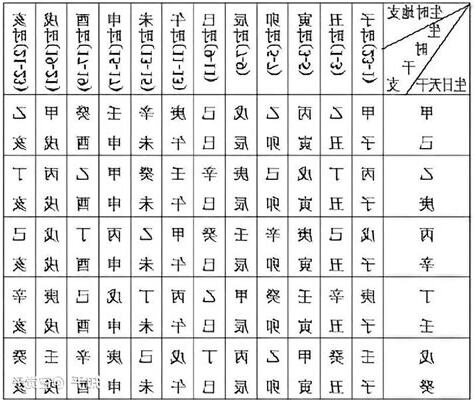 生时地支 子时(23-1) 丑时(1-3) 寅时(3-5) 卯时(5-7) 辰时(7-9) 巳时(9-11) 午时(11-13) 未时(13-15) 申时(15-17) 酉时(17-19) 戌时(19-21) 亥时(21-23)
生时干支
生日天干
甲 甲 乙 丙 丁 戊 己 庚 辛 壬 癸 甲 乙
己 子 丑 寅 卯 辰 巳 午 未 申 酉 戌 亥
乙 丙 丁 戊 己 庚 辛 壬 癸 甲 乙 丙 丁
庚 子 丑 寅 卯 辰 巳 午 未 申 酉 戌 亥
丙 戊 己 庚 辛 壬 癸 甲 乙 丙 丁 戊 己
辛 子 丑 寅 卯 辰 巳 午 未 申 酉 戌 亥
丁 庚 辛 壬 癸 甲 乙 丙 丁 戊 己 庚 辛
壬 子 丑 寅 卯 辰 巳 午 未 申 酉 戌 亥
戊 壬 癸 甲 乙 丙 丁 戊 己 庚 辛 壬 癸
癸 子 丑 寅 卯 辰 巳 午 未 申 酉 戌 亥